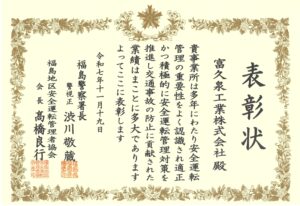 表彰状
富久泉工業株式会社 殿
貴事業所は多年にわたり安全運転
管理の重要性をよく認識され適正
かつ積極的に安全運転管理対策を
推進し交通事故の防止に貢献された
業績はまことに多大であります
よってここに表彰します
令和七年十一月十九日
福島警察署長
警視正 渋川敬蔵
福島地区安全運転管理者協会
会長 髙橋良行